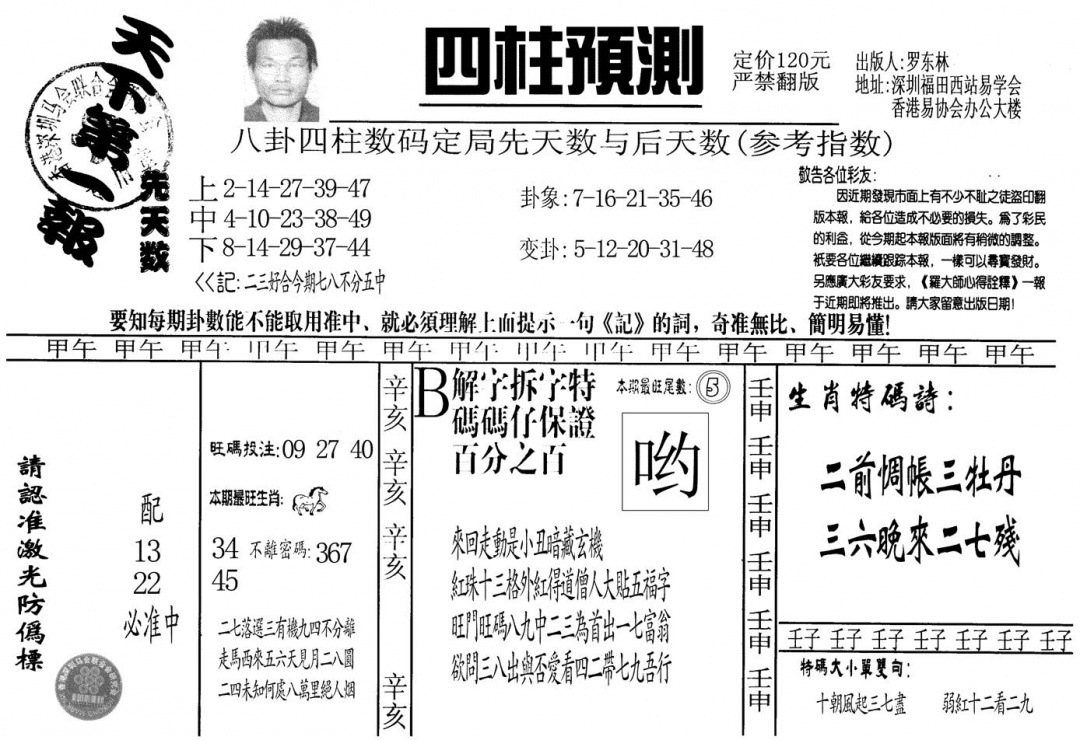 天下第一報
四柱預測
定价120元
严禁翻版
出版人:罗东林
地址:深圳福田西站易学会
香港易协会办公大楼
八卦四柱数码定局先天数与后天数(参考指数)
先天数
上2-14-27-39-47
中4-10-23-38-49
下8-14-29-37-44
<<記:二三好合今期七八不分五中
卦象:7-16-21-35-46
变卦:5-12-20-31-48
敬告各位彩友:
因近期發現市面上有不少不耻之徒盜印翻
版本報,給各位造成不必要的損失。爲了彩民
的利益,從今期起本報版面將有稍微的調整。
衹要各位繼續跟踪本報,一樣可以尋寶發財。
另應廣大彩友要求,《羅大師心得詮釋》一報
于近期即將推出。請大家留意出版日期!
要知每期卦數能不能取用准中、就必須理解上面提示一句《記》的詞,奇准無比、簡明易懂!
甲午 甲午 甲午 甲午 甲午 甲午 甲午 甲午 甲午 甲午 甲午 甲午 甲午 甲午 甲午
請認准激光防僞標
配
13
22
必准中
旺碼投注:09 27 40
本期最旺生肖:
34 不離密碼:367
45
二七落選三有機九四不分離
走馬西來五六天見月二八圓
二四未知何處八萬里絕人烟
辛亥
辛亥
辛亥
辛亥
B解字拆字特
碼碼仔保證
百分之百
本期最旺尾數:5
哟
來回走動是小丑暗藏玄機
紅珠十三格外紅得道僧人大貼五福字
旺門旺碼八九中二三為首出一七富翁
欲問三八出與否愛看四二帶七九吾行
壬申
壬申
壬申
壬申
壬申
壬申
生肖特碼詩:
二前惆帳三牡丹
三六晚來二七殘
壬子 壬子 壬子 壬子 壬子 壬子 壬子
特碼大小單雙句:
十朝風起三七盡 弱紅十二看二九